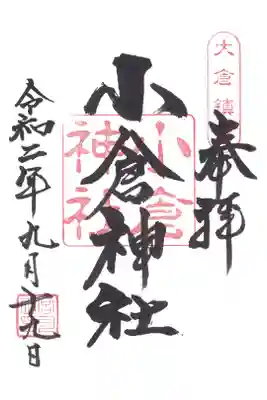 大倉鎮
奉拝
小倉神社
小倉
神社
令和二年九月十九日